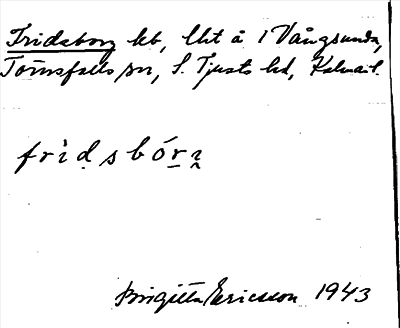 Fridsborg lht, lht å 1 Vångsunda,
Törnsfalls sn, S. Tjusts hd, Kalmar l.
fri̇̀ḍsbór̠i̭
Birgitta Ericsson 1943